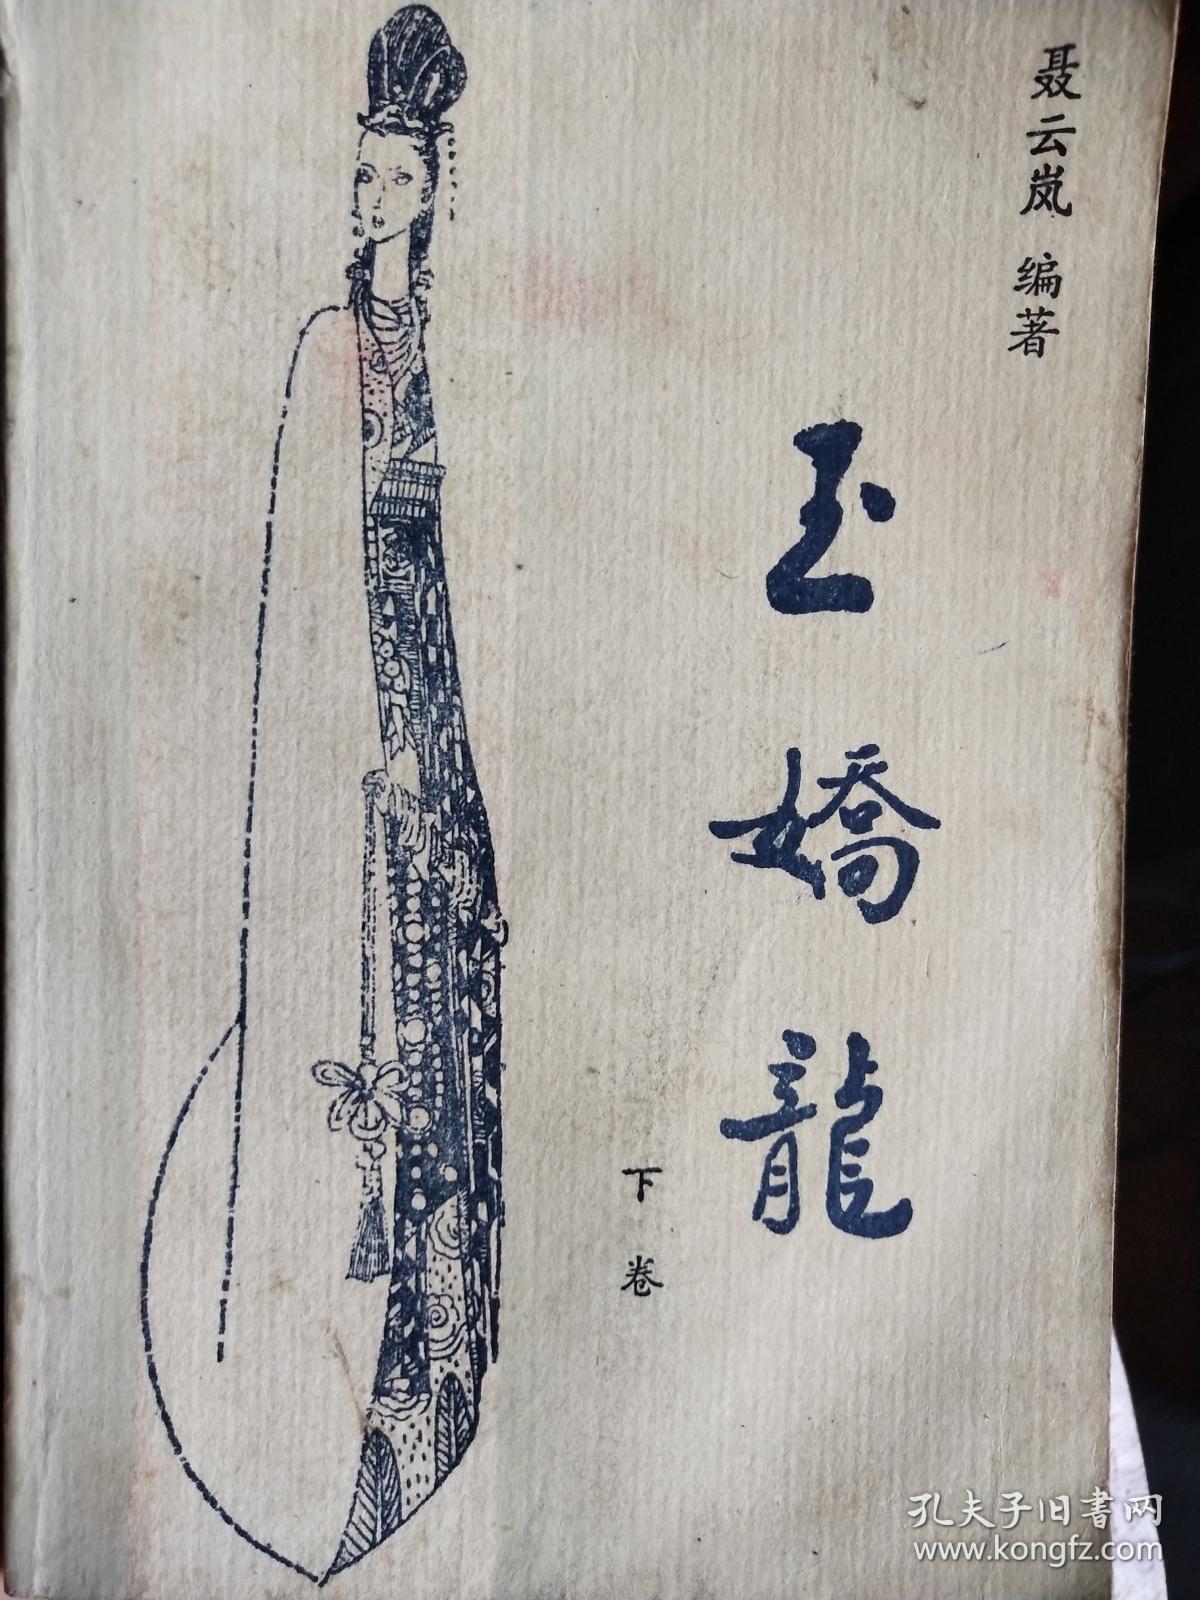 聂云岚 编著
玉嬌龍
下卷
孔夫子旧書网
www.kongfz.com